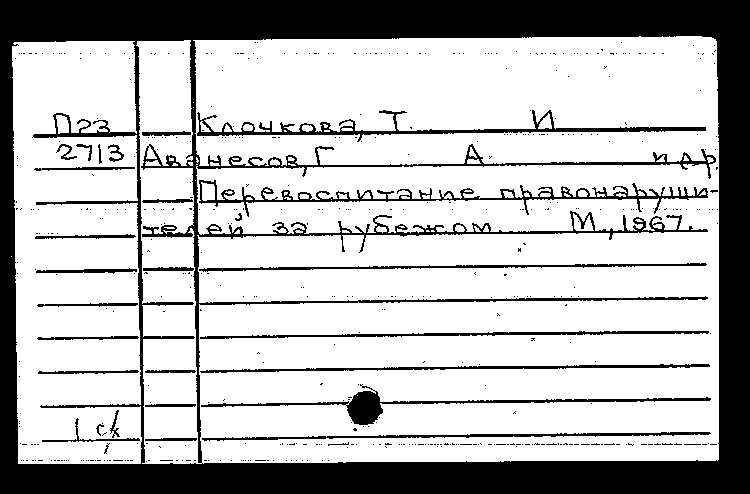 Пгз Клочкова, Т. И
2713 Аванесов, Г А и др.
Перевоспитание правонаруши-
телей за рубежом. М., 1967.
1 ск